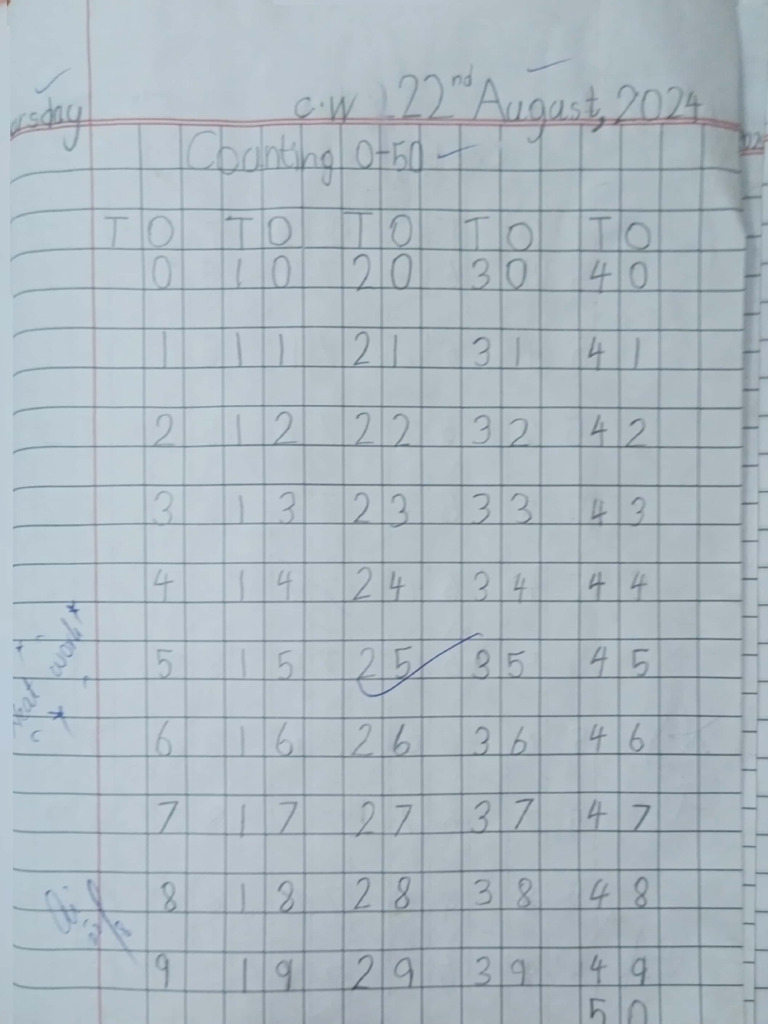 c.w 22nd August, 2024
Counting 0-50
T O T O T O T O T O
0 1 0 2 0 3 0 4 0
1 1 1 2 1 3 1 4 1
2 1 2 2 2 3 2 4 2
3 1 3 2 3 3 3 4 3
4 1 4 2 4 3 4 4 4
5 1 5 2 5 3 5 4 5
6 1 6 2 6 3 6 4 6
7 1 7 2 7 3 7 4 7
8 1 8 2 8 3 8 4 8
9 1 9 2 9 3 9 4 9
5 0
work